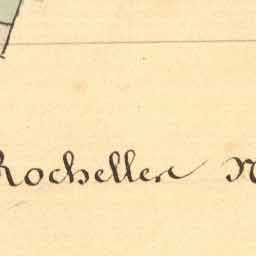 Rocheller N